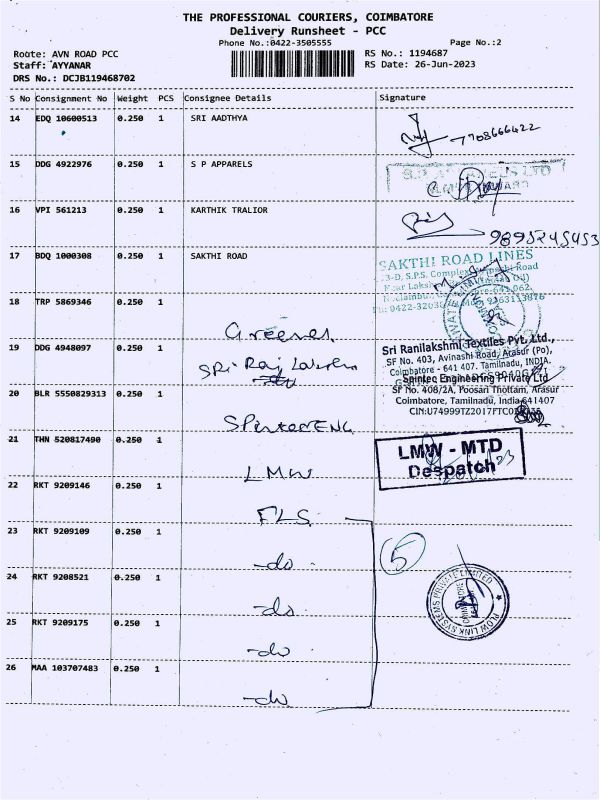 THE PROFESSIONAL COURIERS, COIMBATORE
Delivery Runsheet - PCC
Phone No.:0422-3505555 Page No.:2
Route: AVN ROAD PCC RS No.: 1194687
Staff: AYYANAR RS Date: 26-Jun-2023
DRS No.: DCJB119468702
S No Consignment No Weight PCS Consignee Details Signature
14 EDQ 10600513 0.250 1 SRI AADTHYA
7708666422
15 DDG 4922976 0.250 1 S P APPARELS
16 VPI 561213 0.250 1 KARTHIK TRALIOR
9895245453
17 BDQ 1000308 0.250 1 SAKTHI ROAD
SAKTHI ROAD LINES
3-D, S.P.S. Complex Road
18 TRP 5869346 0.250 1
Greeves
19 DDG 4948097 0.250 1
Sri
Sri Ranilakshmi Textiles Pvt. Ltd.,
SF No. 403, Avinashi Road, Arasur (Po),
Coimbatore - 641 407. Tamilnadu, INDIA.
20 BLR 5550829313 0.250 1
Spintec Engineering Private Ltd
SF No. 408/2A, Poosari Thottam, Arasur
Coimbatore, Tamilnadu, India 641407
21 THN 520817490 0.250 1
LMW
LMW - MTD
Despatch
22 RKT 9209146 0.250 1
FLS
23 RKT 9209109 0.250 1
-do
5
24 RKT 9208521 0.250 1
-do
FLOW LINK SYSTEMS PRIVATE LIMITED
COIMBATORE
25 RKT 9209175 0.250 1
-do
26 MAA 103707483 0.250 1
-do